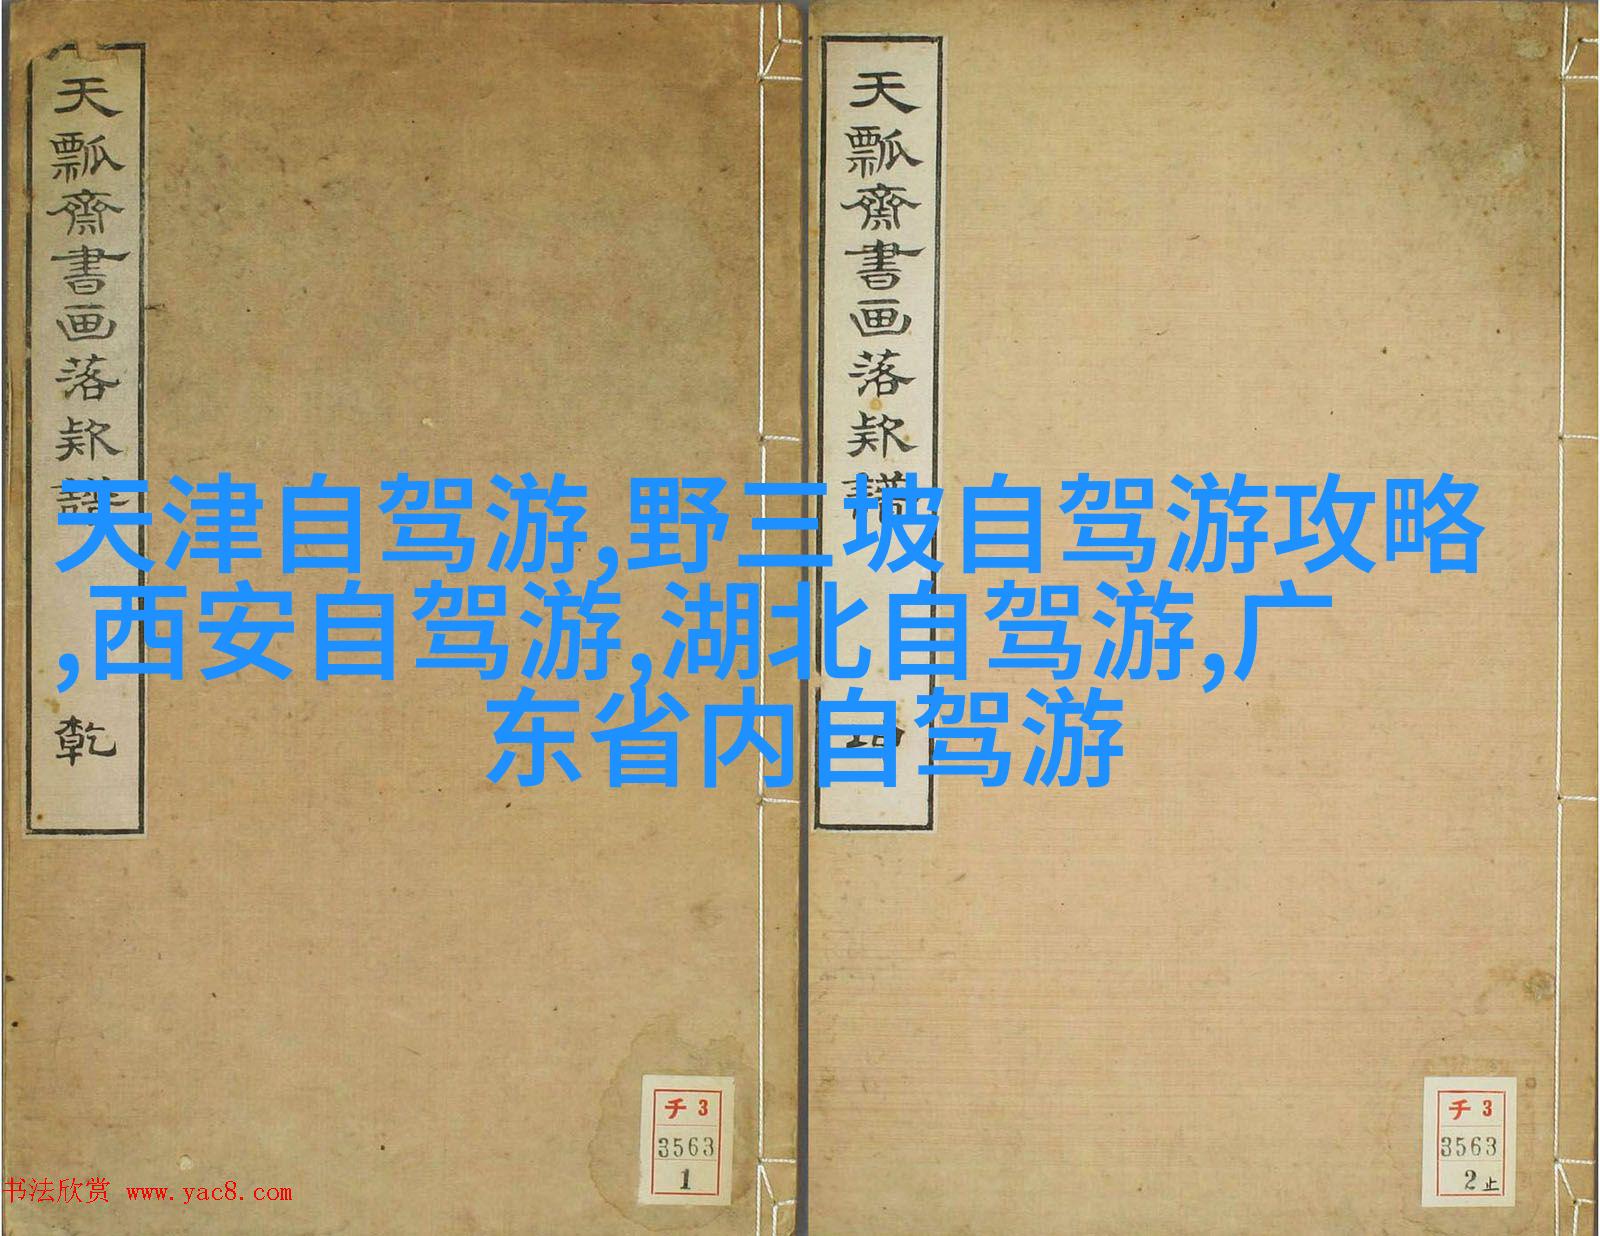 天瓢齋書画落欵譜
乾
天瓢齋書画落欵譜
天津自驾游,野三坡自驾游攻略
,西安自驾游,湖北自驾游,广
东省内自驾游
チ3
3563
1
チ3
3563
2止
书法欣赏 www.yac8.com